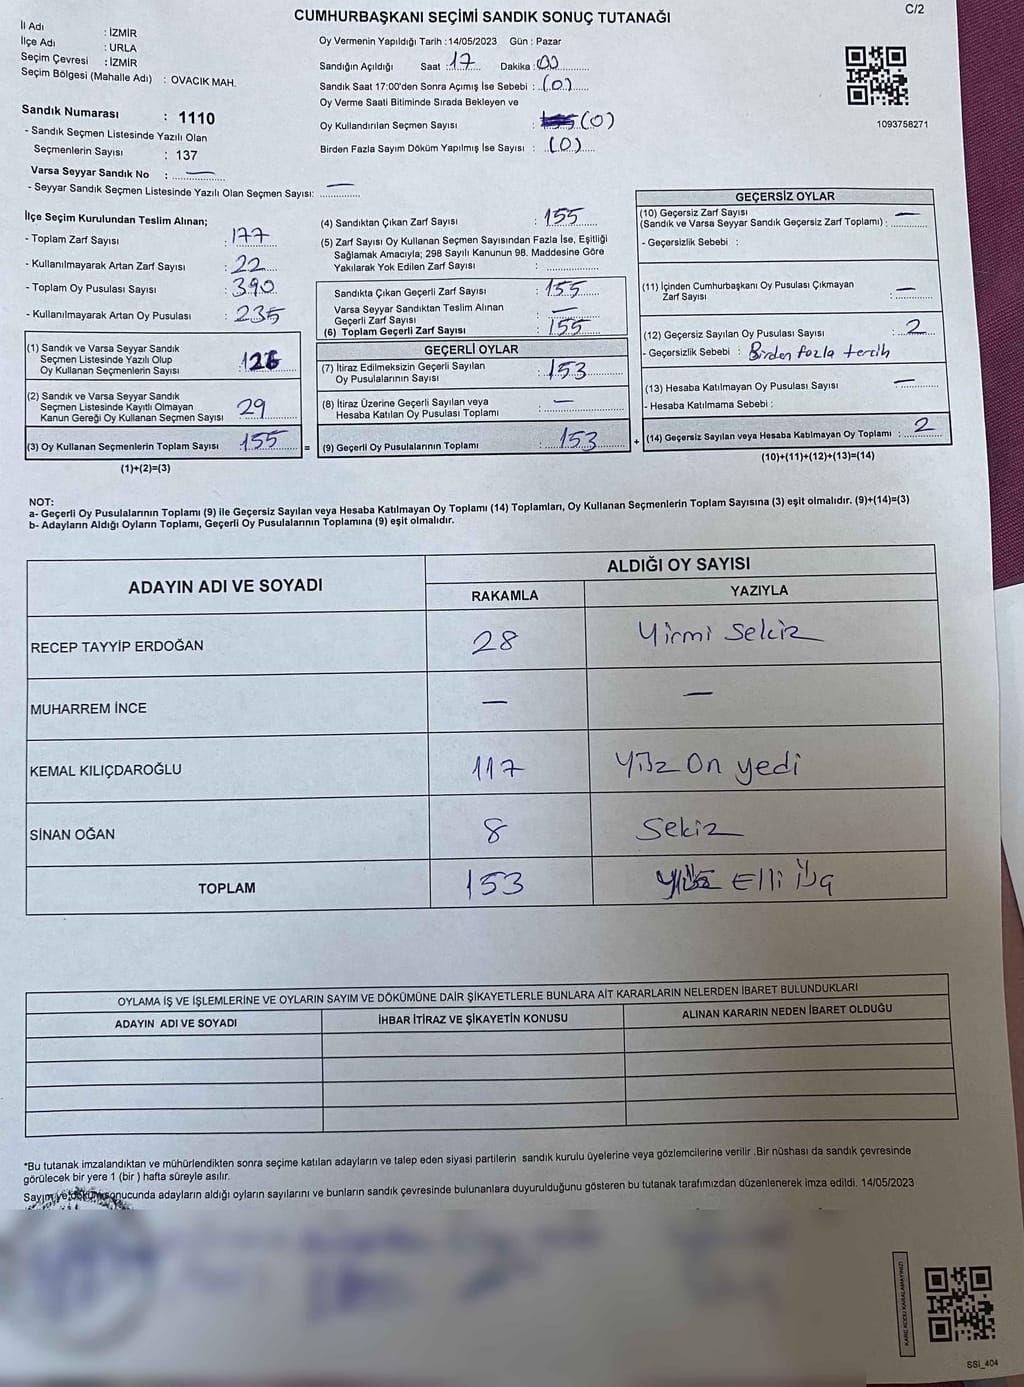 CUMHURBAŞKANI SEÇİMİ SANDIK SONUÇ TUTANAĞI
C/2
İl Adı : İZMİR
İlçe Adı : URLA
Seçim Çevresi : İZMİR
Seçim Bölgesi (Mahalle Adı) : OVACIK MAH.
Oy Vermenin Yapıldığı Tarih : 14/05/2023 Gün : Pazar
Sandığın Açıldığı Saat : 17 Dakika : 00
Sandık Saat 17:00'den Sonra Açımış İse Sebebi : (0)
Oy Verme Saati Bitiminde Sırada Bekleyen ve
Oy Kullandırılan Seçmen Sayısı : (0)
Birden Fazla Sayım Döküm Yapılmış İse Sayısı : (0)
1093758271
Sandık Numarası : 1110
- Sandık Seçmen Listesinde Yazılı Olan
Seçmenlerin Sayısı : 137
Varsa Seyyar Sandık No : —
- Seyyar Sandık Seçmen Listesinde Yazılı Olan Seçmen Sayısı: —
İlçe Seçim Kurulundan Teslim Alınan;
- Toplam Zarf Sayısı : 177
- Kullanılmayarak Artan Zarf Sayısı : 22
- Toplam Oy Pusulası Sayısı : 390
- Kullanılmayarak Artan Oy Pusulası : 235
(1) Sandık ve Varsa Seyyar Sandık
Seçmen Listesinde Yazılı Olup
Oy Kullanan Seçmenlerin Sayısı : 126
(2) Sandık ve Varsa Seyyar Sandık
Seçmen Listesinde Kayıtlı Olmayan
Kanun Gereği Oy Kullanan Seçmen Sayısı 29
(3) Oy Kullanan Seçmenlerin Toplam Sayısı : 155 =
(1)+(2)=(3)
(4) Sandıktan Çıkan Zarf Sayısı : 155
(5) Zarf Sayısı Oy Kullanan Seçmen Sayısından Fazla İse, Eşitliği
Sağlamak Amacıyla; 298 Sayılı Kanunun 98. Maddesine Göre
Yakılarak Yok Edilen Zarf Sayısı :
Sandıkta Çıkan Geçerli Zarf Sayısı : 155
Varsa Seyyar Sandıktan Teslim Alınan
Geçerli Zarf Sayısı : —
(6) Toplam Geçerli Zarf Sayısı : 155
GEÇERLİ OYLAR
(7) İtiraz Edilmeksizin Geçerli Sayılan
Oy Pusulalarının Sayısı : 153
(8) İtiraz Üzerine Geçerli Sayılan veya
Hesaba Katılan Oy Pusulası Toplamı : —
(9) Geçerli Oy Pusulalarının Toplamı : 153 +
GEÇERSİZ OYLAR
(10) Geçersiz Zarf Sayısı
(Sandık ve Varsa Seyyar Sandık Geçersiz Zarf Toplamı) : —
- Geçersizlik Sebebi :
(11) İçinden Cumhurbaşkanı Oy Pusulası Çıkmayan
Zarf Sayısı : —
(12) Geçersiz Sayılan Oy Pusulası Sayısı : 2
- Geçersizlik Sebebi : Birden fazla tercih
(13) Hesaba Katılmayan Oy Pusulası Sayısı : —
- Hesaba Katılmama Sebebi :
(14) Geçersiz Sayılan veya Hesaba Katılmayan Oy Toplamı : 2
(10)+(11)+(12)+(13)=(14)
NOT:
a- Geçerli Oy Pusulalarının Toplamı (9) ile Geçersiz Sayılan veya Hesaba Katılmayan Oy Toplamı (14) Toplamları, Oy Kullanan Seçmenlerin Toplam Sayısına (3) eşit olmalıdır. (9)+(14)=(3)
b- Adayların Aldığı Oyların Toplamı, Geçerli Oy Pusulalarının Toplamına (9) eşit olmalıdır.
ADAYIN ADI VE SOYADI
ALDIĞI OY SAYISI
RAKAMLA YAZIYLA
RECEP TAYYİP ERDOĞAN 28 Yirmi Sekiz
MUHARREM İNCE — —
KEMAL KILIÇDAROĞLU 117 Yüz On yedi
SİNAN OĞAN 8 Sekiz
TOPLAM 153 Yüz Elli üç
OYLAMA İŞ VE İŞLEMLERİNE VE OYLARIN SAYIM VE DÖKÜMÜNE DAİR ŞİKAYETLERLE BUNLARA AİT KARARLARIN NELERDEN İBARET BULUNDUKLARI
ADAYIN ADI VE SOYADI İHBAR İTİRAZ VE ŞİKAYETİN KONUSU ALINAN KARARIN NEDEN İBARET OLDUĞU
*Bu tutanak imzalandıktan ve mühürlendikten sonra seçime katılan adayların ve talep eden siyasi partilerin sandık kurulu üyelerine veya gözlemcilerine verilir .Bir nüshası da sandık çevresinde
görülecek bir yere 1 (bir ) hafta süreyle asılır.
Sayım ve döküm sonucunda adayların aldığı oyların sayılarını ve bunların sandık çevresinde bulunanlara duyurulduğunu gösteren bu tutanak tarafımızdan düzenlenerek imza edildi. 14/05/2023
KARE KODU KARALAMAYINIZ!
SSİ_404